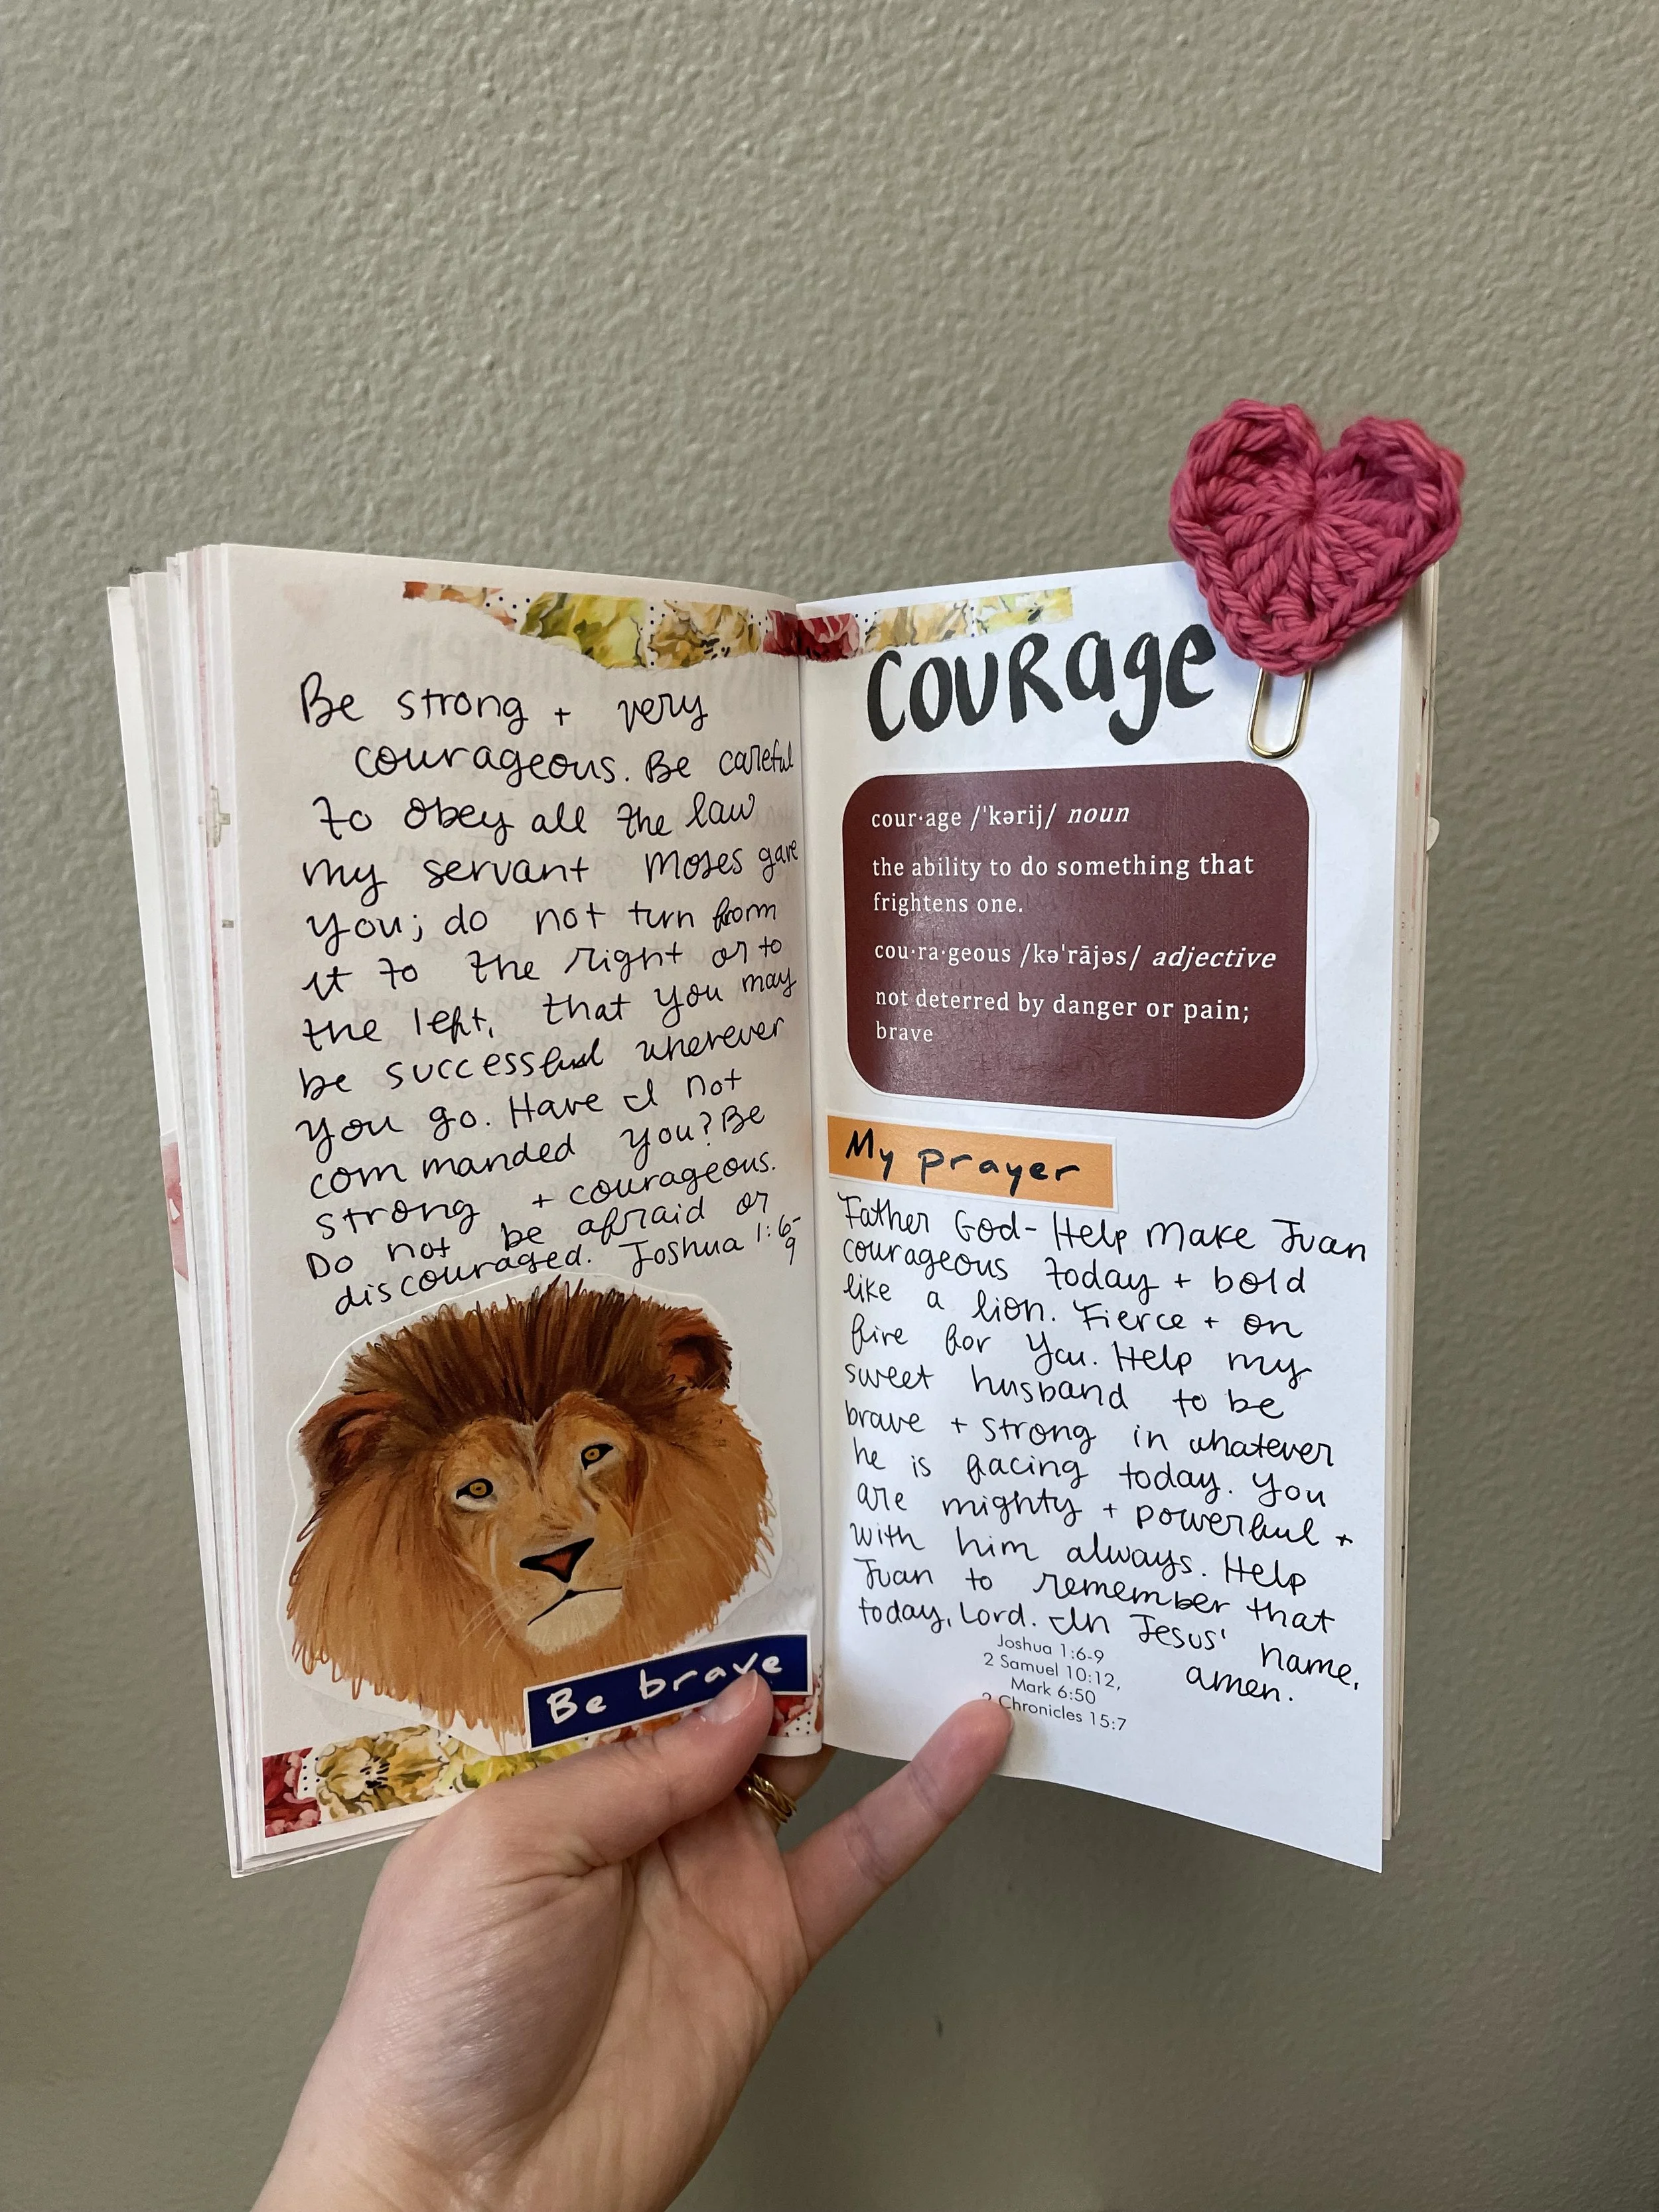 Be strong + very
courageous. Be careful
to obey all the law
my servant Moses gave
you; do not turn from
it to the right or to
the left, that you may
be successful wherever
you go. Have I not
commanded you? Be
strong + courageous.
Do not be afraid or
discouraged. Joshua 1:6-
9
Be brave
Courage
cour·age /ˈkərij/ noun
the ability to do something that
frightens one.
cou·ra·geous /kəˈrājəs/ adjective
not deterred by danger or pain;
brave
My prayer
Father God- Help make Juan
courageous today + bold
like a lion. Fierce + on
fire for You. Help my
sweet husband to be
brave + strong in whatever
he is facing today. You
are mighty + powerful +
with him always. Help
Juan to remember that
today, Lord. In Jesus' name,
amen.
Joshua 1:6-9
2 Samuel 10:12,
Mark 6:50
2 Chronicles 15:7